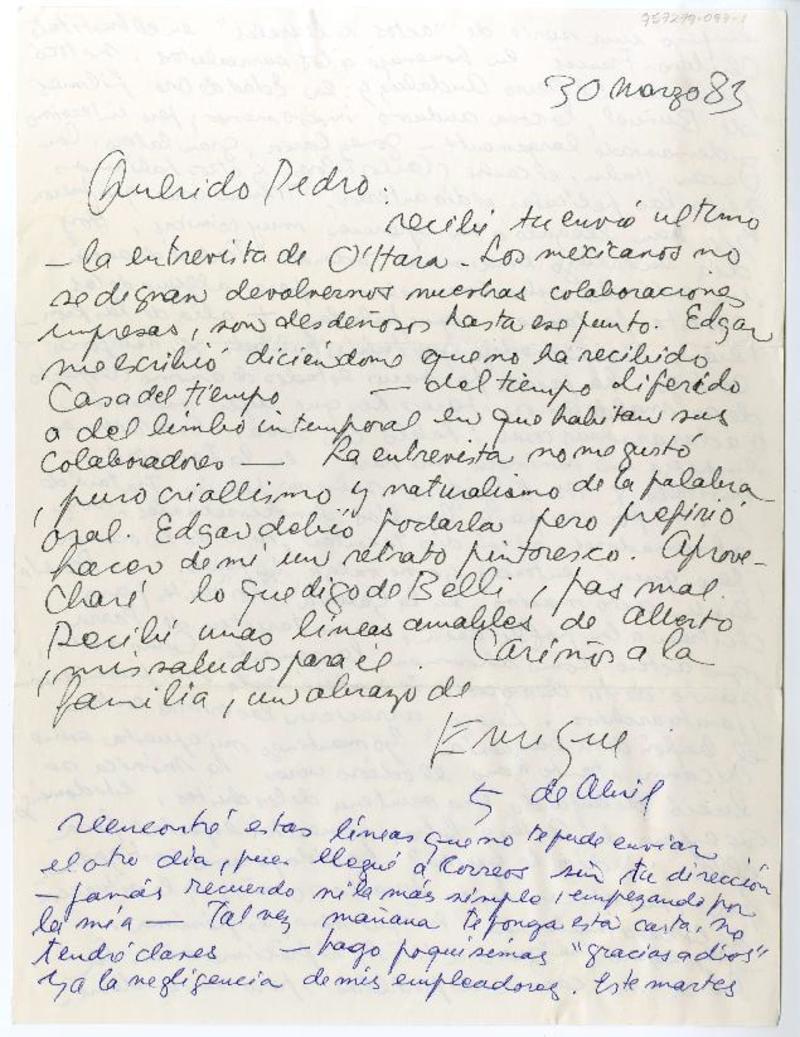 757279-097-1
30 Marzo 83
Querido Pedro:
recibí tu envío ultimo
— la entrevista de O'Hara - Los mexicanos no
se dignan devolvernos nuestras colaboraciones
impresas, son desdeñosos hasta ese punto. Edgar
me escribió diciéndome que no ha recibido
Casa del tiempo — del tiempo diferido
o del limbo intemporal en que habitan sus
colaboradores — La entrevista no me gustó
, puro criollismo y naturalismo de la palabra
oral. Edgar debió podarla pero prefirió
hacer de mí un retrato pintoresco. Aprove-
charé lo que digo de Belli, pas mal.
Recibí unas líneas amables de Alberto
, mis saludos para él. Cariños a la
familia, un abrazo de
Enrique
5 de Abril
Reencontré estas líneas que no te pude enviar
el otro día, pues llegué a Correos sin tu dirección
— jamás recuerdo ni la más simple, empezando por
la mía — Tal vez mañana te ponga esta carta, no
tendré clases — hago poquísimas "gracias a dios"
y a la negligencia de mis empleadores. Este martes